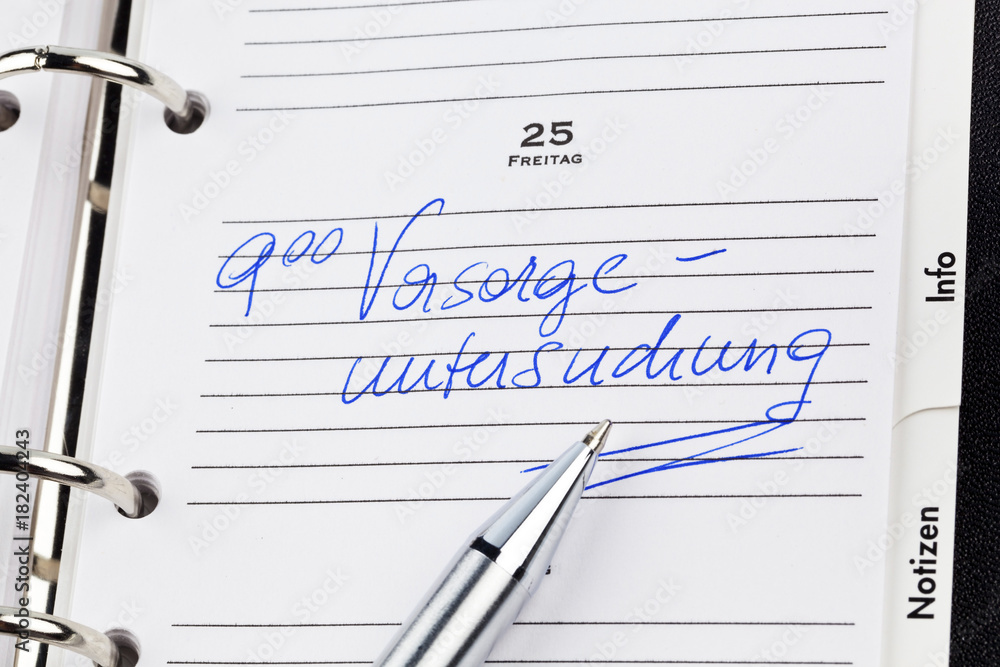 25
FREITAG
9⁰⁰ Vorsorge-
untersuchung
Info
Notizen
Adobe Stock | #182404243